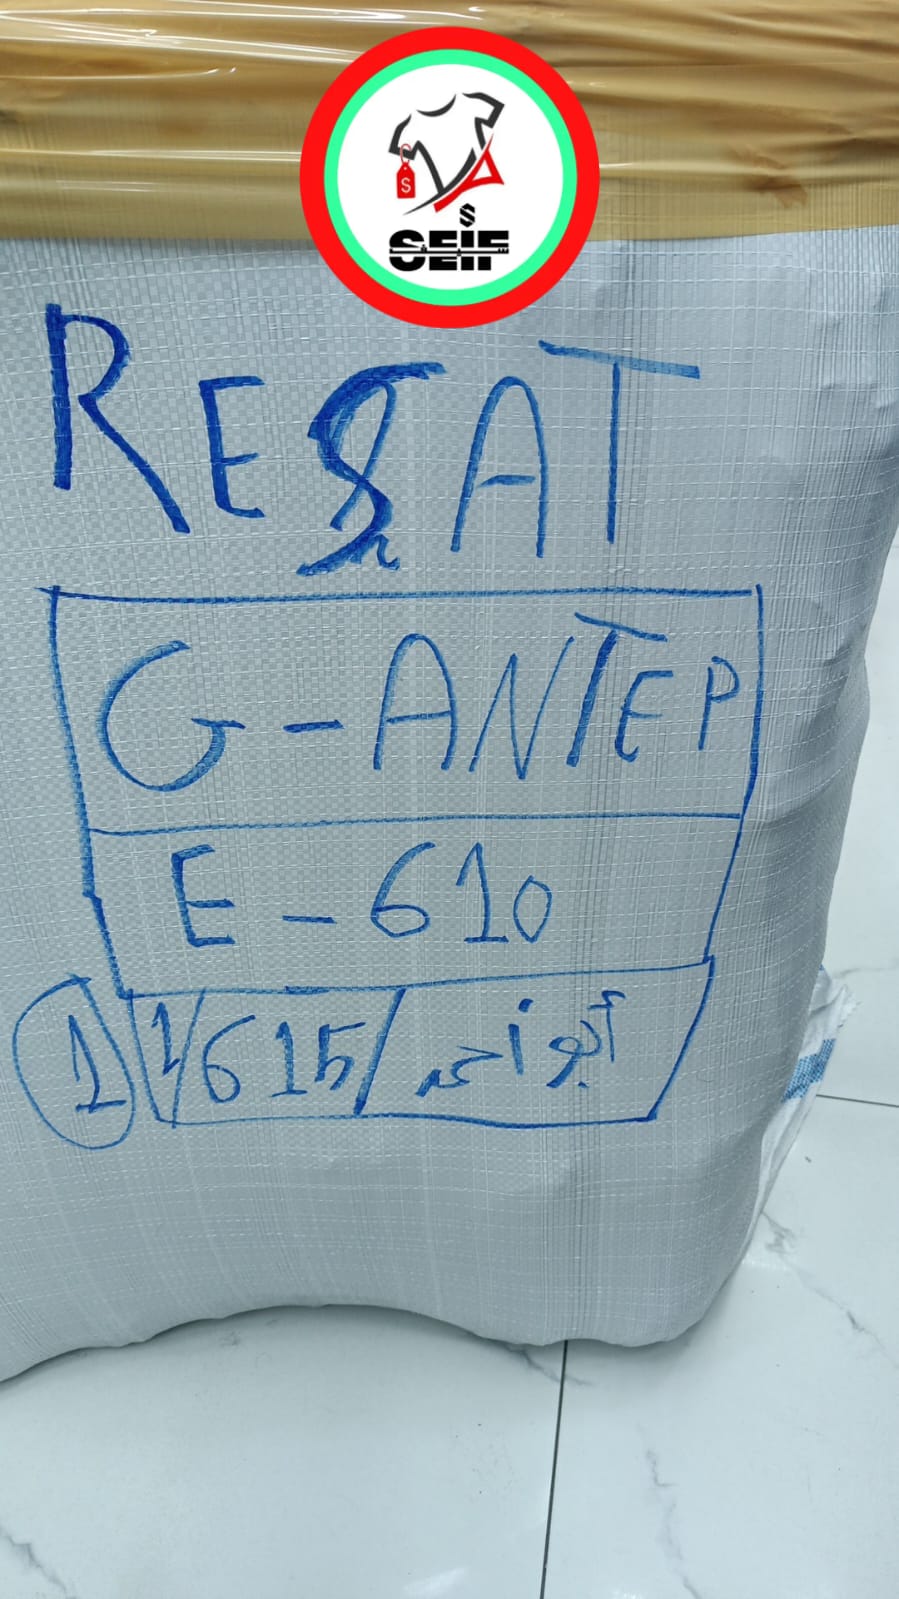 $
$
SEIF
REŞAT
G-ANTEP
E-610
1 1/615/ أبو أحمد